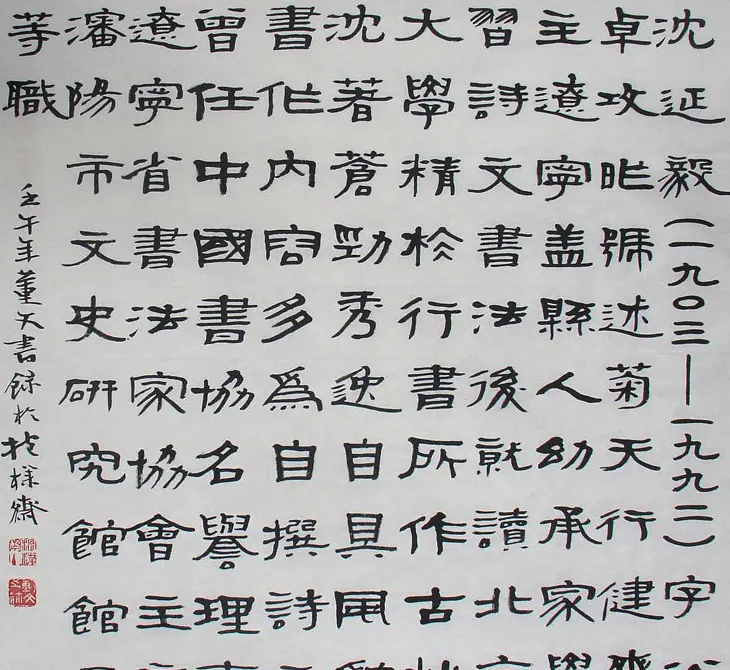 沈延毅(一九〇三—一九九二)字
卓攻昨號述菊天行健
主遼寧盖縣人幼承家學
習詩文書法後就讀北
大學精於行書所作古
沈著蒼勁秀逸自具風
書作內容多為自撰詩
曾任中國書協名譽理
遼寧省書法家協會主
瀋陽市文史研究館館
等職
壬午年董文書錄於齋